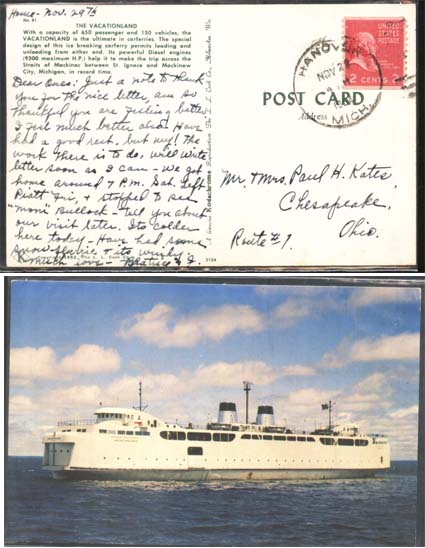 Home - Nov. 29th
No. 81
THE VACATIONLAND
With a capacity of 650 passenger and 150 vehicles, the
VACATIONLAND is the ultimate in carferries. The special
design of this ice breaking carferry permits loading and
unloading from either end. Its powerful Diesel engines
(9300 maximum H.P.) help it to make the trip across the
Straits of Mackinac between St. Ignace and Mackinaw
City, Michigan, in record time.
Dear Ones: Just a note to thank
you for the nice letter, am so
thankful you are feeling better
I feel much better also. Have
had a good rest. but my! the
work there is to do, will write
letter soon as I can - We got
home around 7 P.M. Sat. Left
Pratt Fri, & stopped to see
"moni Bullock - tell you about
our visit later. Its colder
here today - Have had some
snow
much love -
2134
UNITED
STATES
POSTAGE
2 CENTS 2
HANOVER
NOV 28
MICH.
POST CARD
Address
Mr. & Mrs. Paul H. Kates,
Chesapeake,
Route #1. Ohio.